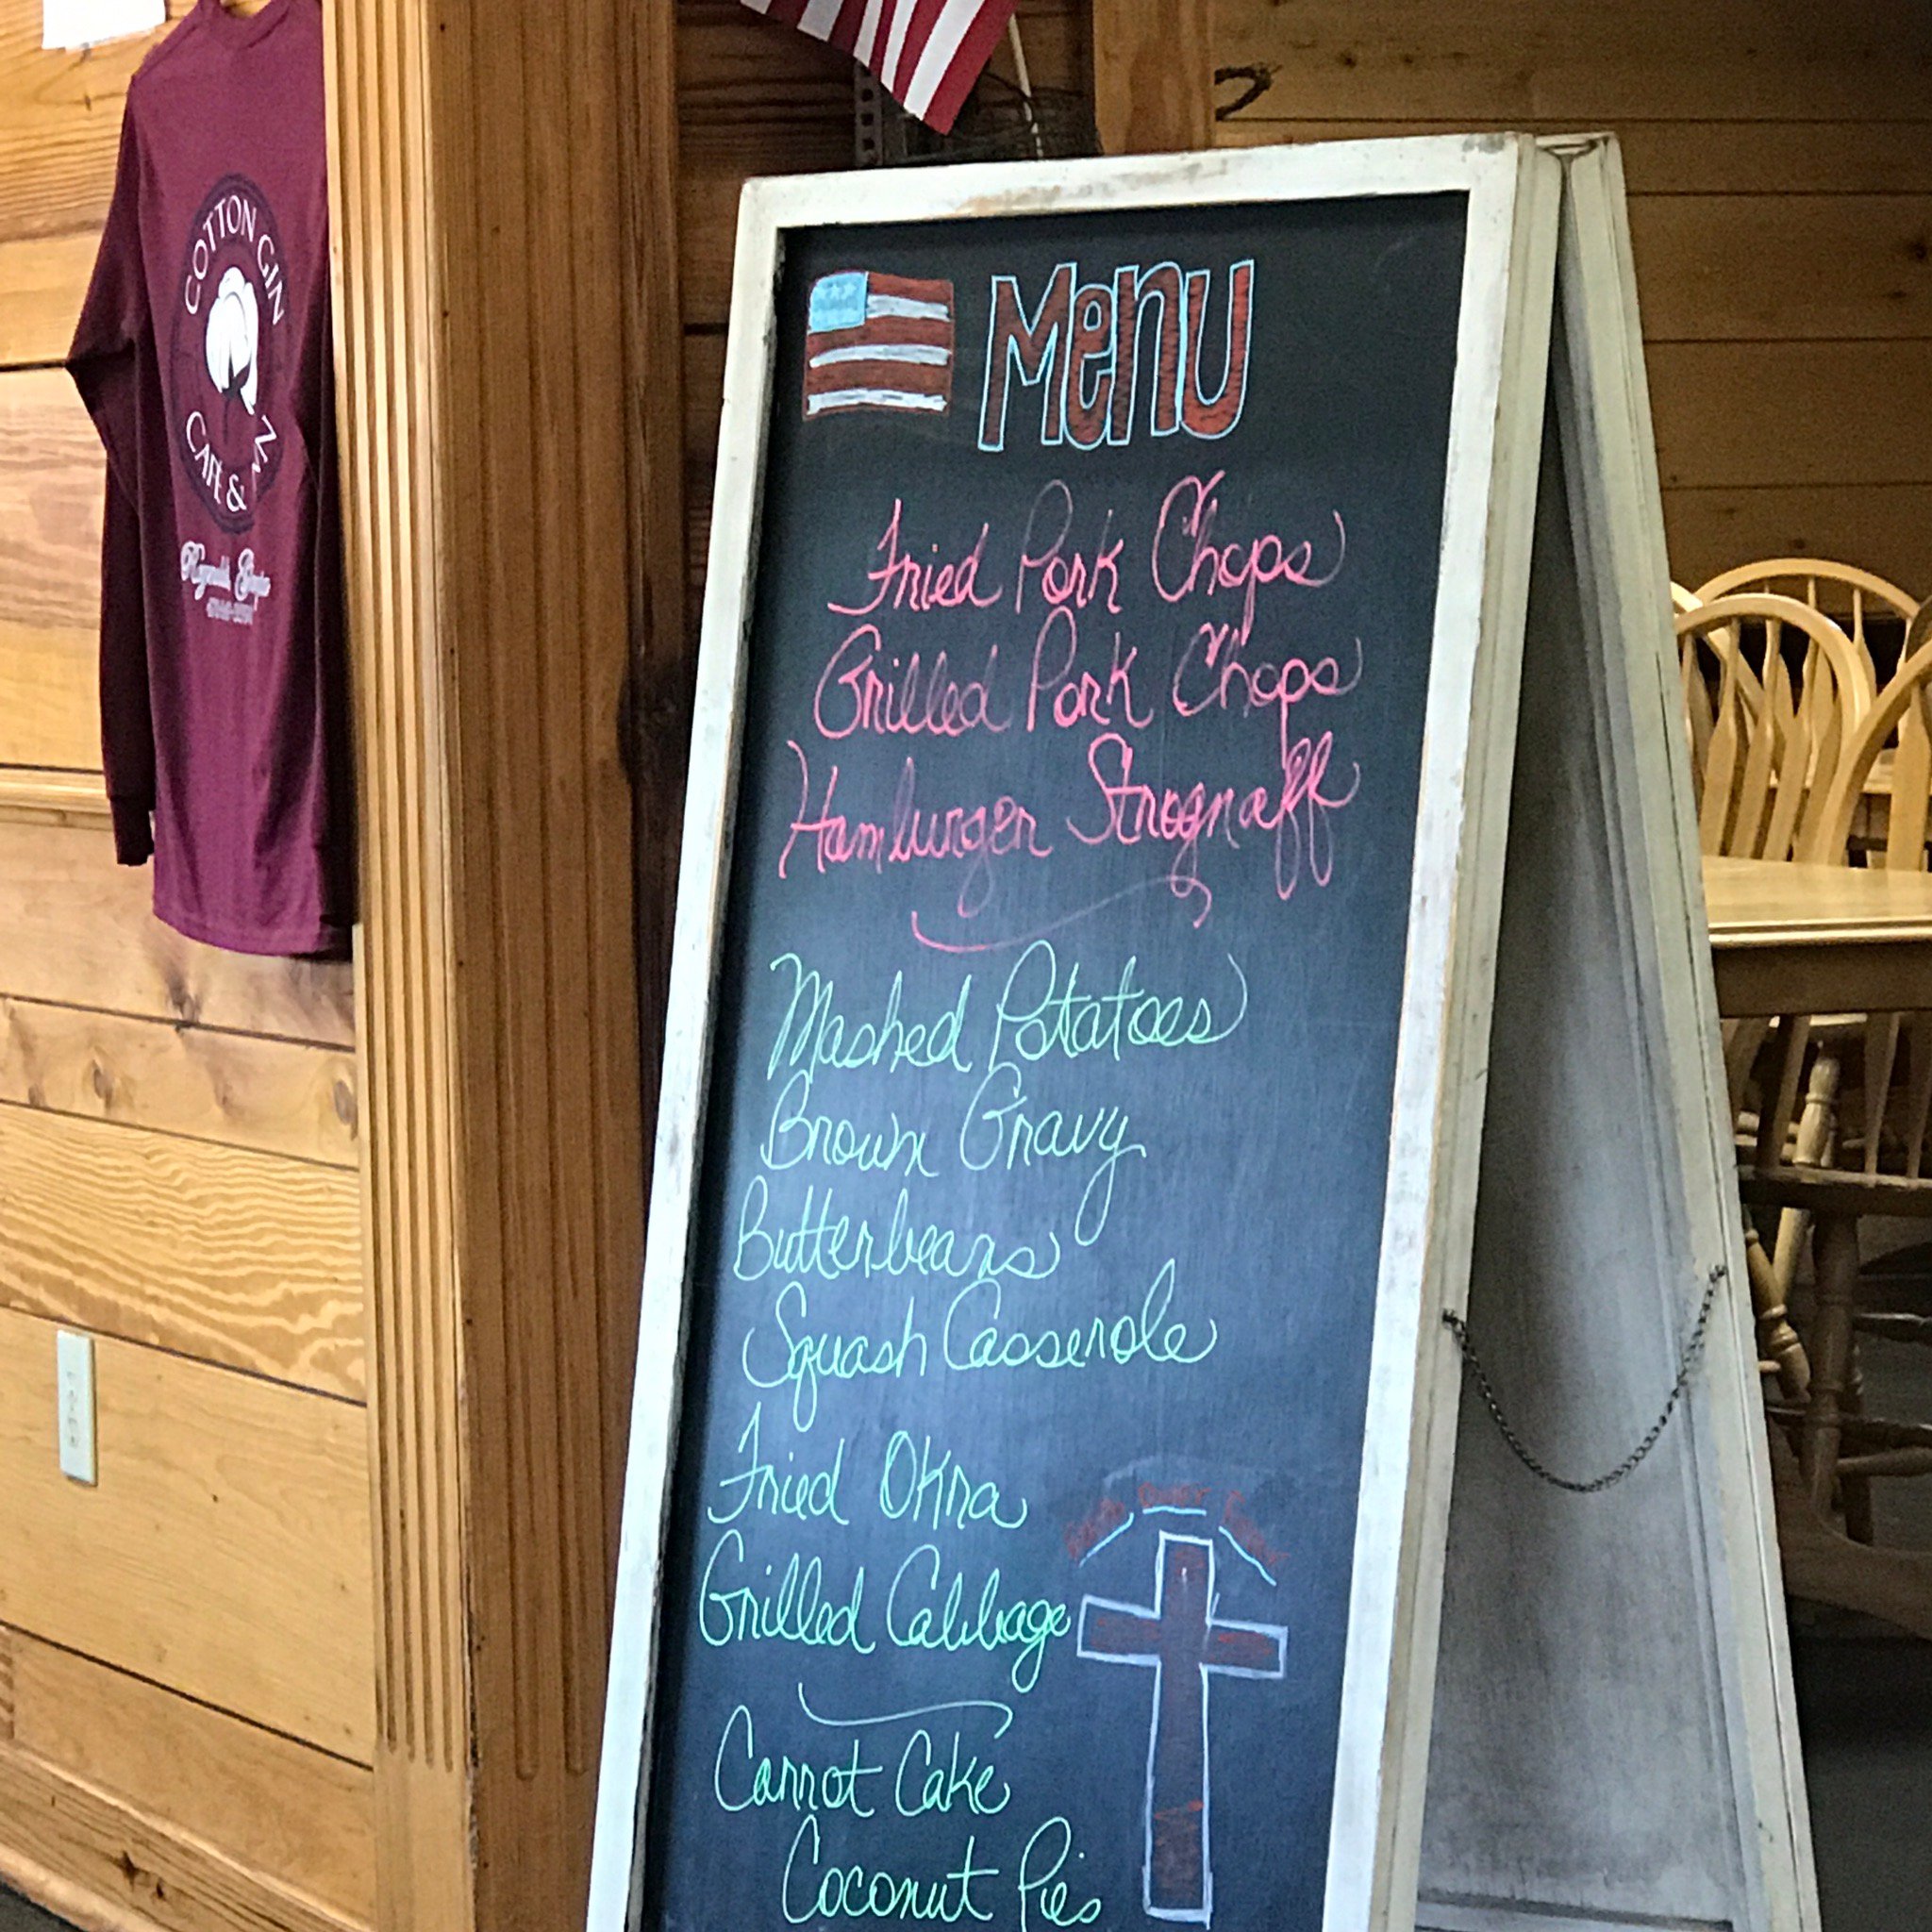 COTTON GIN
CAFÉ &
Menu
Fried Pork Chops
Grilled Pork Chops
Hamburger Strognaff
Mashed Potatoes
Brown Gravy
Butterbeans
Squash Casserole
Fried Okra
Grilled Cabbage
Carrot Cake
Coconut Pies